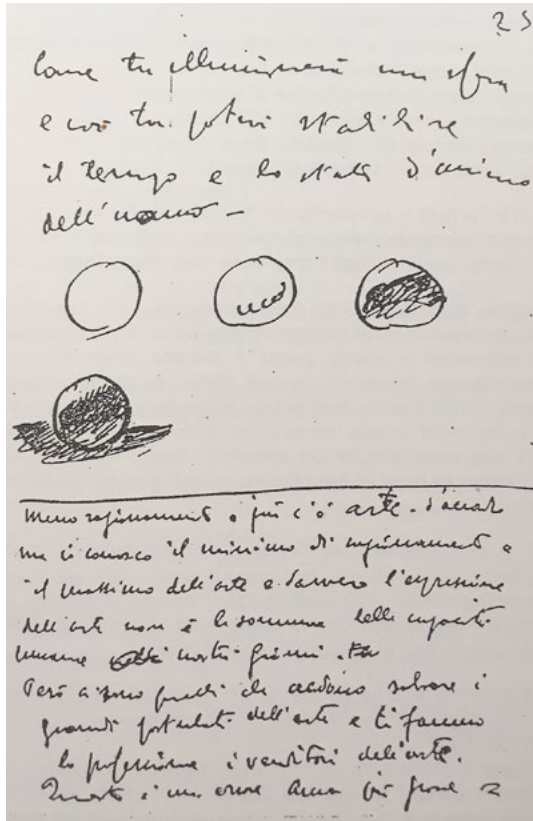 25
Come tu illuminerai una sfera
e così tu potrai stabilire
il tempo e lo stato d'animo
dell'uomo -
Meno ragionamento e più c'è arte. d'accordo
ma ci conosco il minimo di ragionamento e
il massimo dell'arte e davvero l'espressione
dell'arte non è la somma delle capacità
umane nostri giorni.
Però ci sono quelli che credono salvare i
grandi postulati dell'arte e ti fanno
la professione i venditori dell'arte.
Questo è un errore ancora più grave